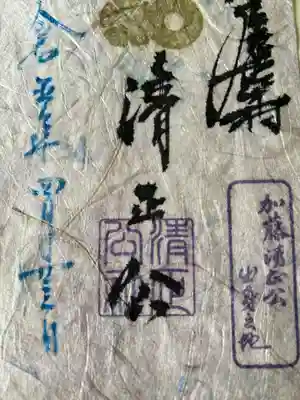 清正公
清正公
加藤清正公
出身之地
令和五年四月廿三日